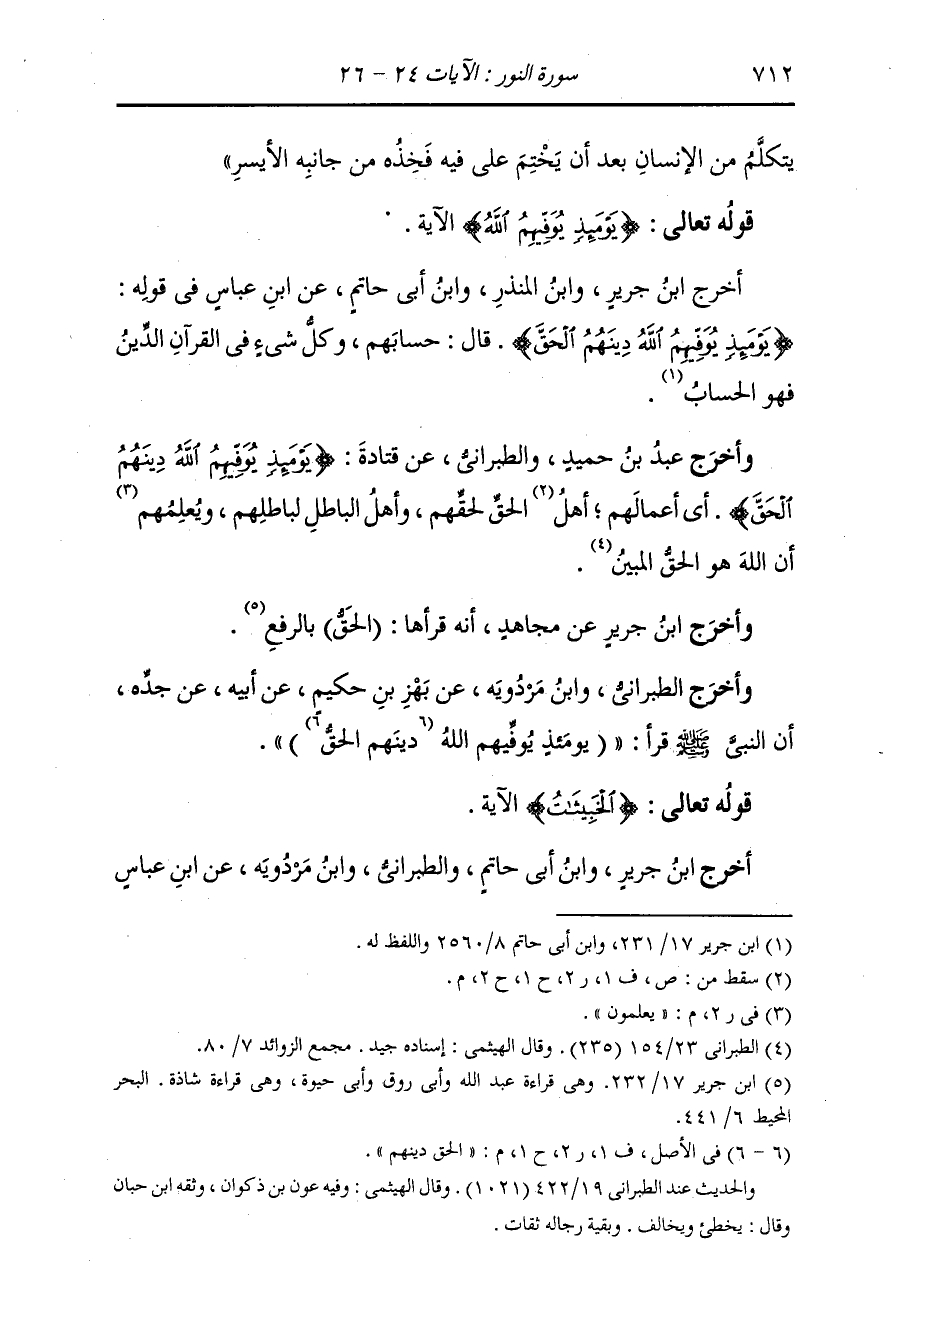 ٧١٢ سورة النور : الآيات ٢٤ - ٢٦
يتكلَّمُ من الإنسانِ بعد أن يَخْتِمَ على فيه فَخِذُه من جانبِه الأيسرِ»
قولُه تعالى : ﴿يَوْمَئِذٍ يُوَفِّيهِمُ ٱللَّهُ﴾ الآية .
أخرج ابنُ جريرٍ ، وابنُ المنذرِ ، وابنُ أبى حاتمٍ ، عن ابنِ عباسٍ فى قولِه :
﴿يَوْمَئِذٍ يُوَفِّيهِمُ ٱللَّهُ دِينَهُمُ ٱلْحَقَّ﴾ . قال : حسابَهم ، وكلُّ شىءٍ فى القرآنِ الدِّينُ
فهو الحسابُ(١) .
وأخرَج عبدُ بنُ حميدٍ ، والطبرانىُّ ، عن قتادةَ : ﴿يَوْمَئِذٍ يُوَفِّيهِمُ ٱللَّهُ دِينَهُمُ
ٱلْحَقَّ﴾ . أى أعمالَهم ؛ أهلُ(٢) الحقِّ لحقِّهم ، وأهلُ الباطلِ لباطلِهم ، ويُعلِمُهم(٣)
أن اللهَ هو الحقُّ المبينُ(٤) .
وأخرَج ابنُ جريرٍ عن مجاهدٍ ، أنه قرأها : (الحَقُّ) بالرفعِ(٥) .
وأخرَج الطبرانىُّ ، وابنُ مَرْدُويَه ، عن بَهْزِ بنِ حكيمٍ ، عن أبيه ، عن جدِّه ،
أن النبىَّ ﷺ قرأ : « ( يومَئذٍ يُوفِّيهم اللهُ (٦دينَهم الحقُّ٦) )» .
قولُه تعالى : ﴿ٱلْخَبِيثَٰتُ﴾ الآية .
أخرج ابنُ جريرٍ ، وابنُ أبى حاتمٍ ، والطبرانىُّ ، وابنُ مَرْدُويَه ، عن ابنِ عباسٍ
(١) ابن جرير ١٧/ ٢٣١، وابن أبى حاتم ٨/ ٢٥٦٠ واللفظ له .
(٢) سقط من : ص ، ف ١، ر ٢، ح ١، ح ٢، م .
(٣) فى ر ٢، م : « يعلمون » .
(٤) الطبرانى ٢٣/ ١٥٤ (٢٣٥) . وقال الهيثمى : إسناده جيد . مجمع الزوائد ٧/ ٨٠.
(٥) ابن جرير ١٧/ ٢٣٢. وهى قراءة عبد الله وأبى روق وأبى حيوة ، وهى قراءة شاذة . البحر
المحيط ٦/ ٤٤١.
(٦ - ٦) فى الأصل ، ف ١، ر ٢، ح ١، م : « الحق دينهم » .
والحديث عند الطبرانى ١٩/ ٤٢٢ (١٠٢١) . وقال الهيثمى : وفيه عون بن ذكوان ، وثقه ابن حبان
وقال : يخطئ ويخالف . وبقية رجاله ثقات .